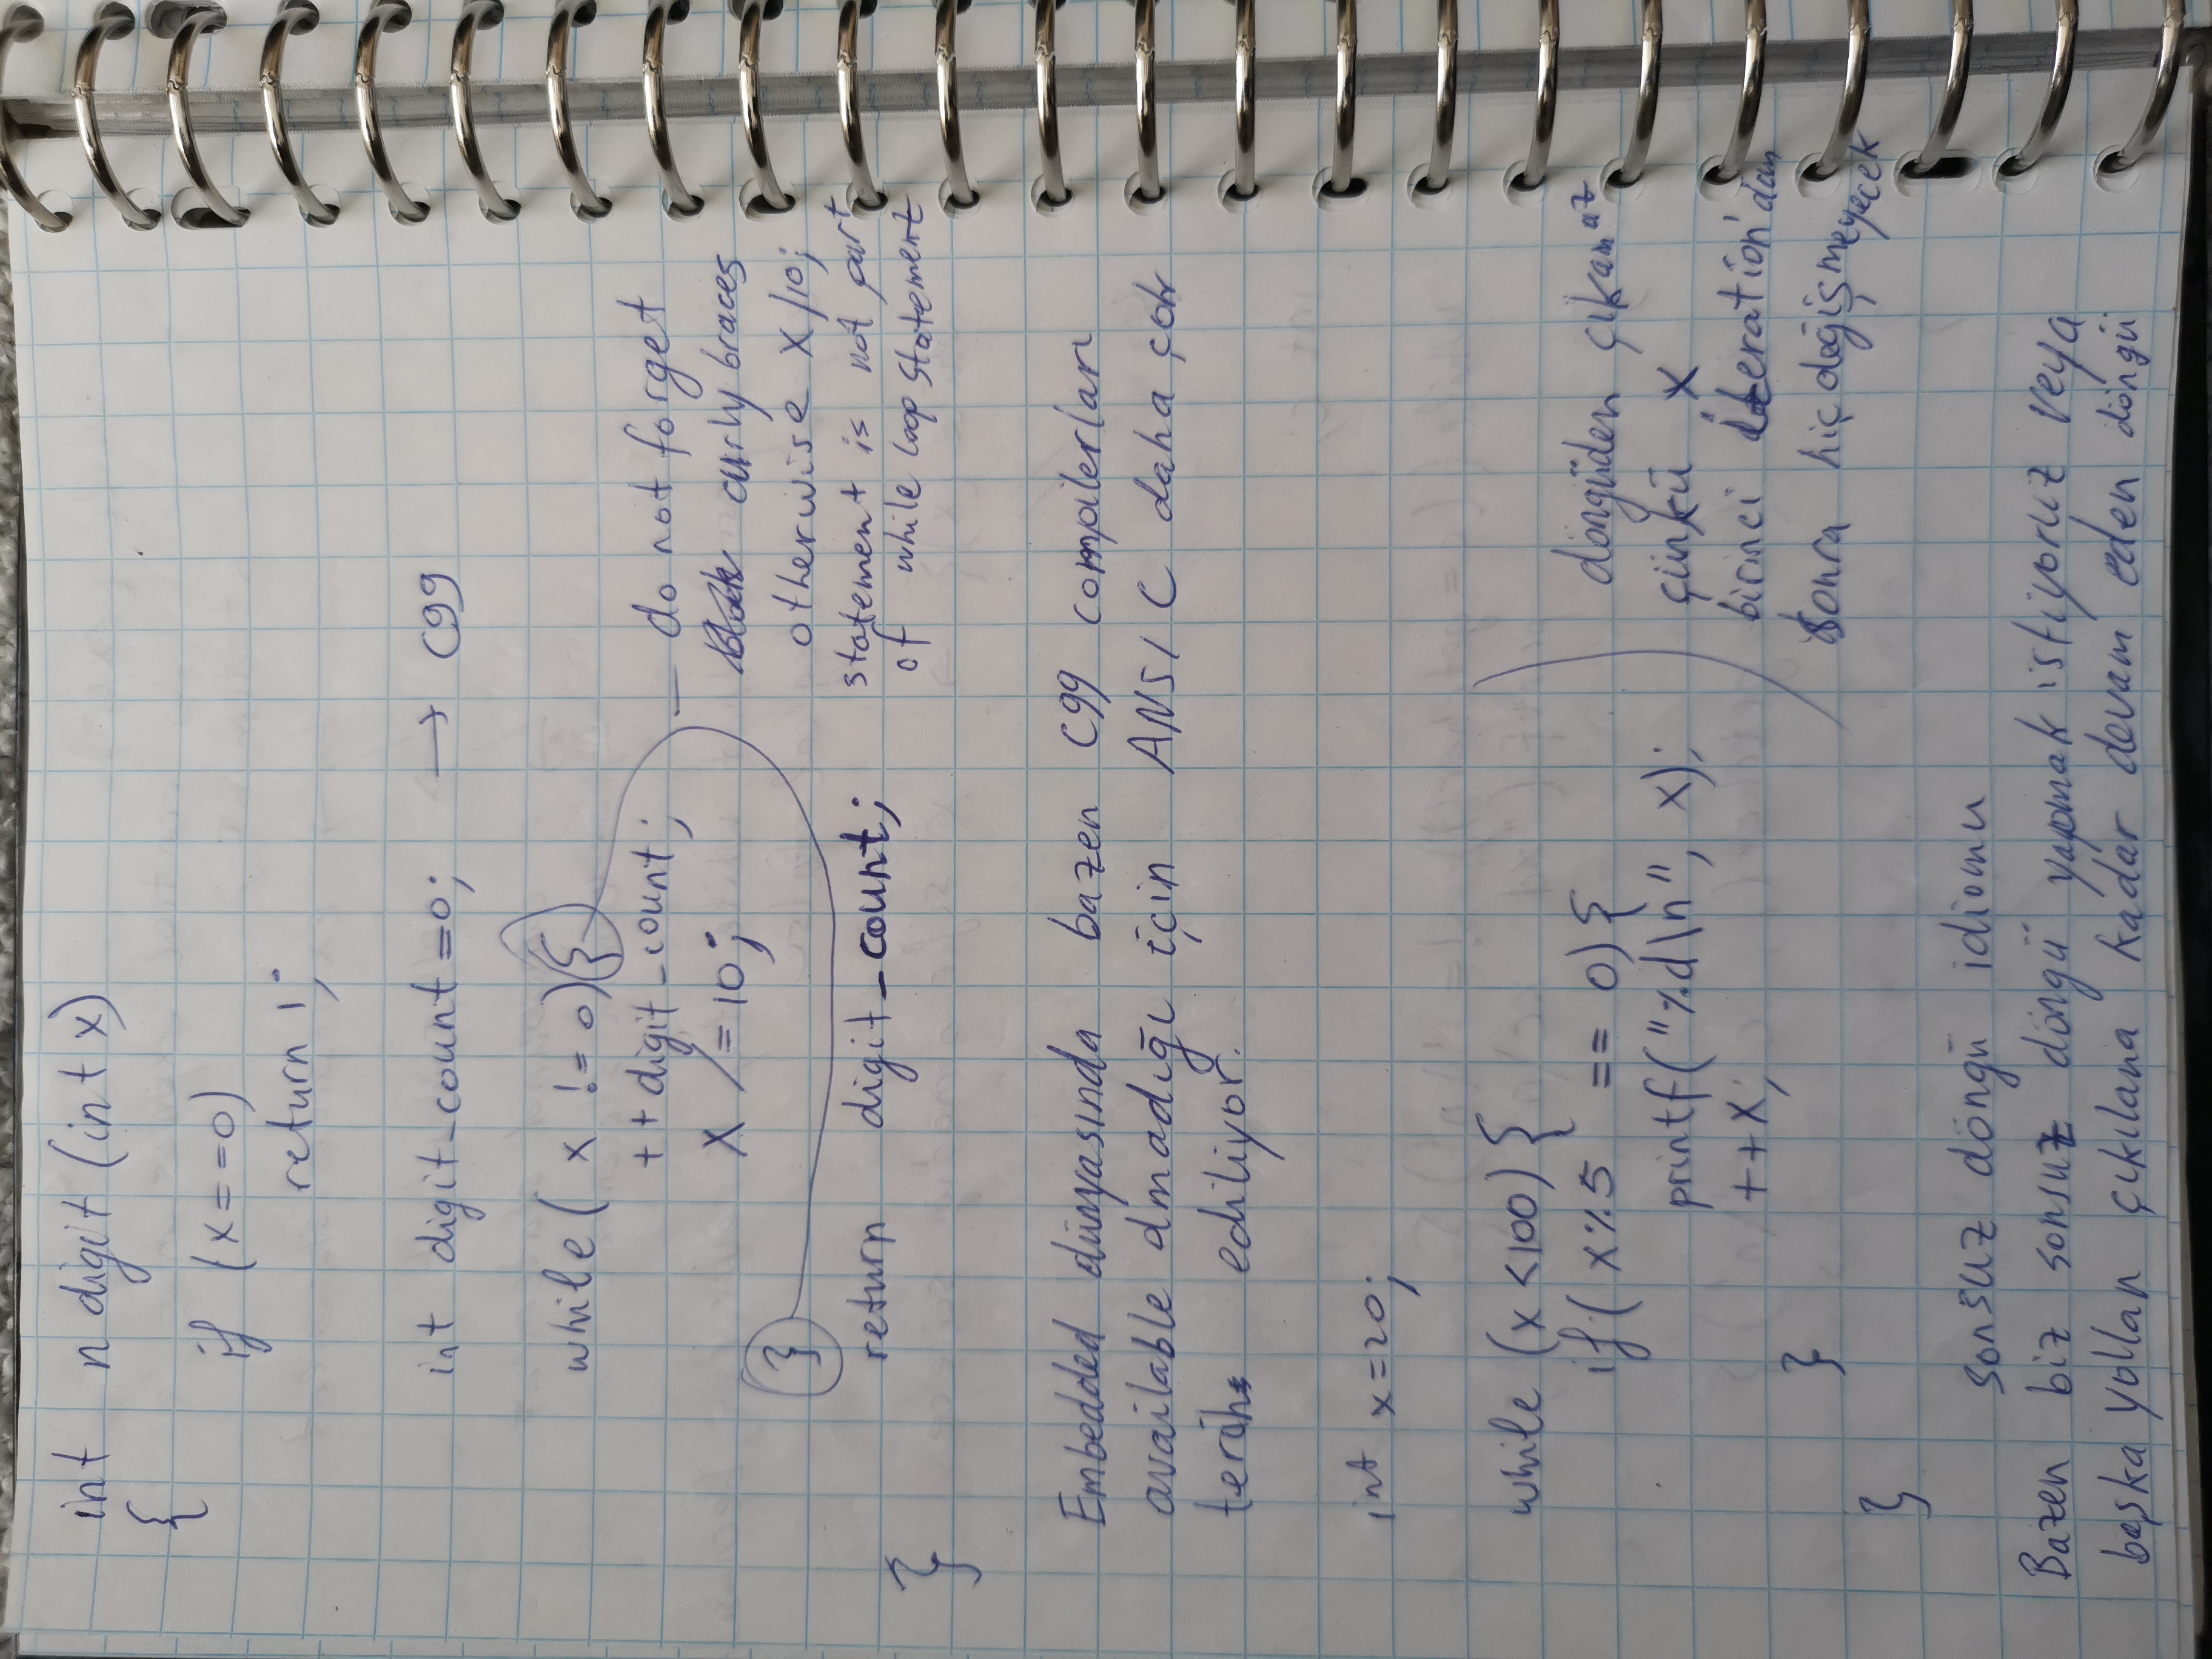 int n digit (int x)
{
if (x==0)
return 1;
int digit_count=0; → C99
while( x != 0){
++digit_count;
x /=10;
}
— do not forget
curly braces
otherwise x/10;
statement is not part
of while loop statement
return digit_count;
}
Embedded dünyasında bazen C99 compilerları
available olmadığı için ANSI C daha çok
ediliyor.
int x=20;
while (x<100) {
if( x%5 == 0) {
printf("%d\n", x);
++x;
}
}
döngüden çıkamaz
çünkü x
birinci iteration'dan
sonra hiç değişmeyecek
sonsuz döngü idiomu
Bazen biz sonsuz döngü yapmak istiyoruz veya
başka yollan çıkılana kadar devam eden döngü